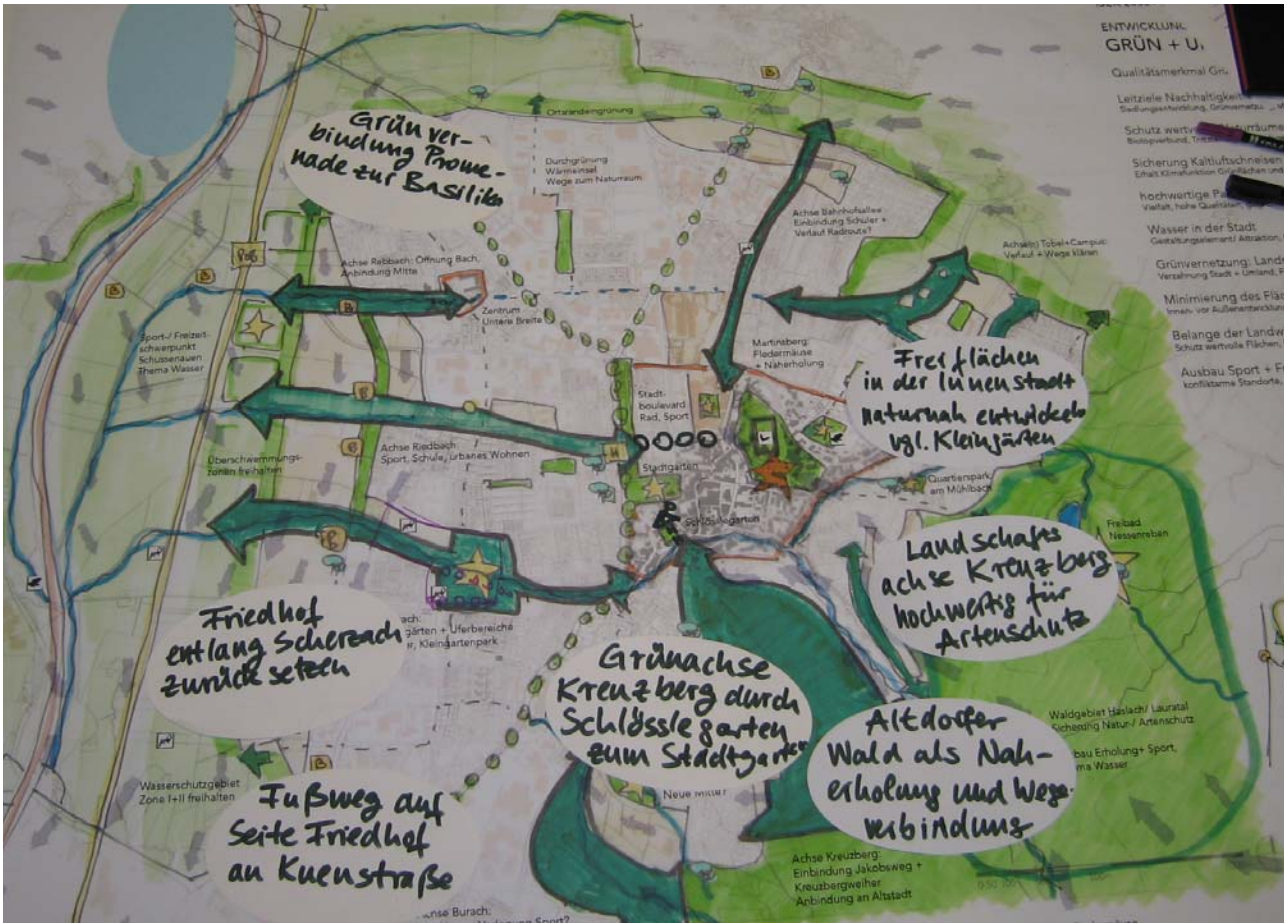 ENTWICKLUNG
GRÜN + U
Qualitätsmerkmal
Leitziele
Siedlungsentwicklung,
Schutz
Biotopverbund,
Sicherung Kaltluftschneisen
Erhalt Klimafunktion Grünflächen und
hochwertige
Vielfalt, hohe
Wasser in der Stadt
Gestaltungselement/ Attraktion,
Grünvernetzung:
Verzahnung Stadt + Umland,
Minimierung des
Innen- vor Außenentwicklung
Belange der
Schutz wertvolle Flächen,
Ausbau Sport +
konfliktarme Standorte,
Grünver-
bindung Prome-
nade zur Basilika
Ortsrandeingrünung
B
Durchgrünung
Wärmeinsel
Wege zum Naturraum
Achse Bahnhofsallee:
Einbindung Schüler +
Verlauf Radroute?
Achse(n) Tobel+Campus:
Verlauf + Wege klären
Achse Rebbach: Öffnung Bach,
Anbindung Mitte
B
B
B
Zentrum
Untere Breite
Sport-/ Freizeit-
schwerpunkt
Schussenauen
Thema Wasser
Martinsberg:
Fledermäuse
+ Naherholung
Freiflächen
in der Innenstadt
naturnah entwickeln
vgl. Kleingärten
Stadt-
boulevard
Rad, Sport
B
Achse Riedbach:
Sport, Schule, urbanes Wohnen
H
B
Überschwemmungs-
zonen freihalten
Stadtgarten
Quartierspark
am Mühlbach
Schlösslegarten
Freibad
Nessenreben
Landschafts
achse Kreuzberg
hochwertig für
Artenschutz
Friedhof
entlang Scherzach
zurück setzen
gärten + Uferbereiche
Kleingartenpark
Grünachse
Kreuzberg durch
Schlösslegarten
zum Stadtgarten
Altdorfer
Wald als Nah-
erholung und Wege-
verbindung
Waldgebiet Haslach/ Lauratal
Sicherung Natur-/ Artenschutz
Erholung+ Sport,
Wasser
Wasserschutzgebiet
Zone I+II freihalten
B
Fußweg auf
Seite Friedhof
an Kuenstraße
Neue Mitte?
Achse Kreuzberg:
Einbindung Jakobsweg +
Kreuzbergweiher
Anbindung an Altstadt
0 50 100
Burach:
Sport?